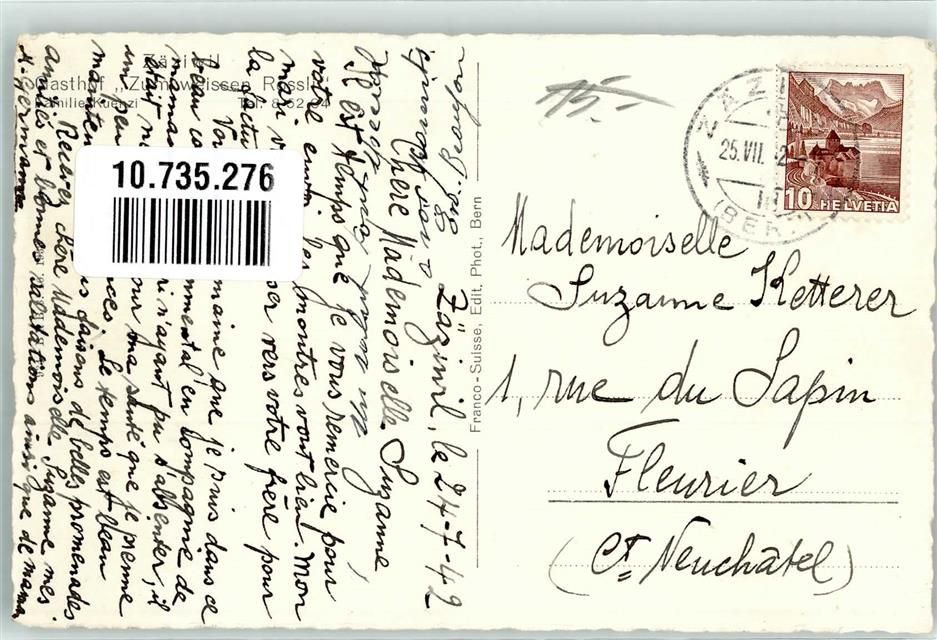 Zäziwil
Gasthof „Zum weissen Rössli"
Familie Kuenzi Tel. 8 52 24
15.-
ZÄZIWIL
25.VII.42
(BERN)
10 HELVETIA
10.735.276
Franco-Suisse, Edit. Phot., Bern
Mademoiselle
Suzanne Ketterer
1, rue du Sapin
Fleurier
(Ct. Neuchâtel)
Zäziwil, le 24-7-42
Chère Mademoiselle Suzanne,
Il est temps que je vous remercie pour
votre envoi, les montres vont bien. Mon
mari ser vers votre frère pour
la factu
Voi maine que je suis dans ce
beau mmental en compagne de
maman ri n'ayant pu s'absenter, il
était ne our ma santé que je prenne
un peu nces. Le temps est beau
mainten us faisons de belles promenades
Recevez chère Mademoiselle Suzanne mes
amitiés et bonnes salutations ainsi que de maman
M. Germaine